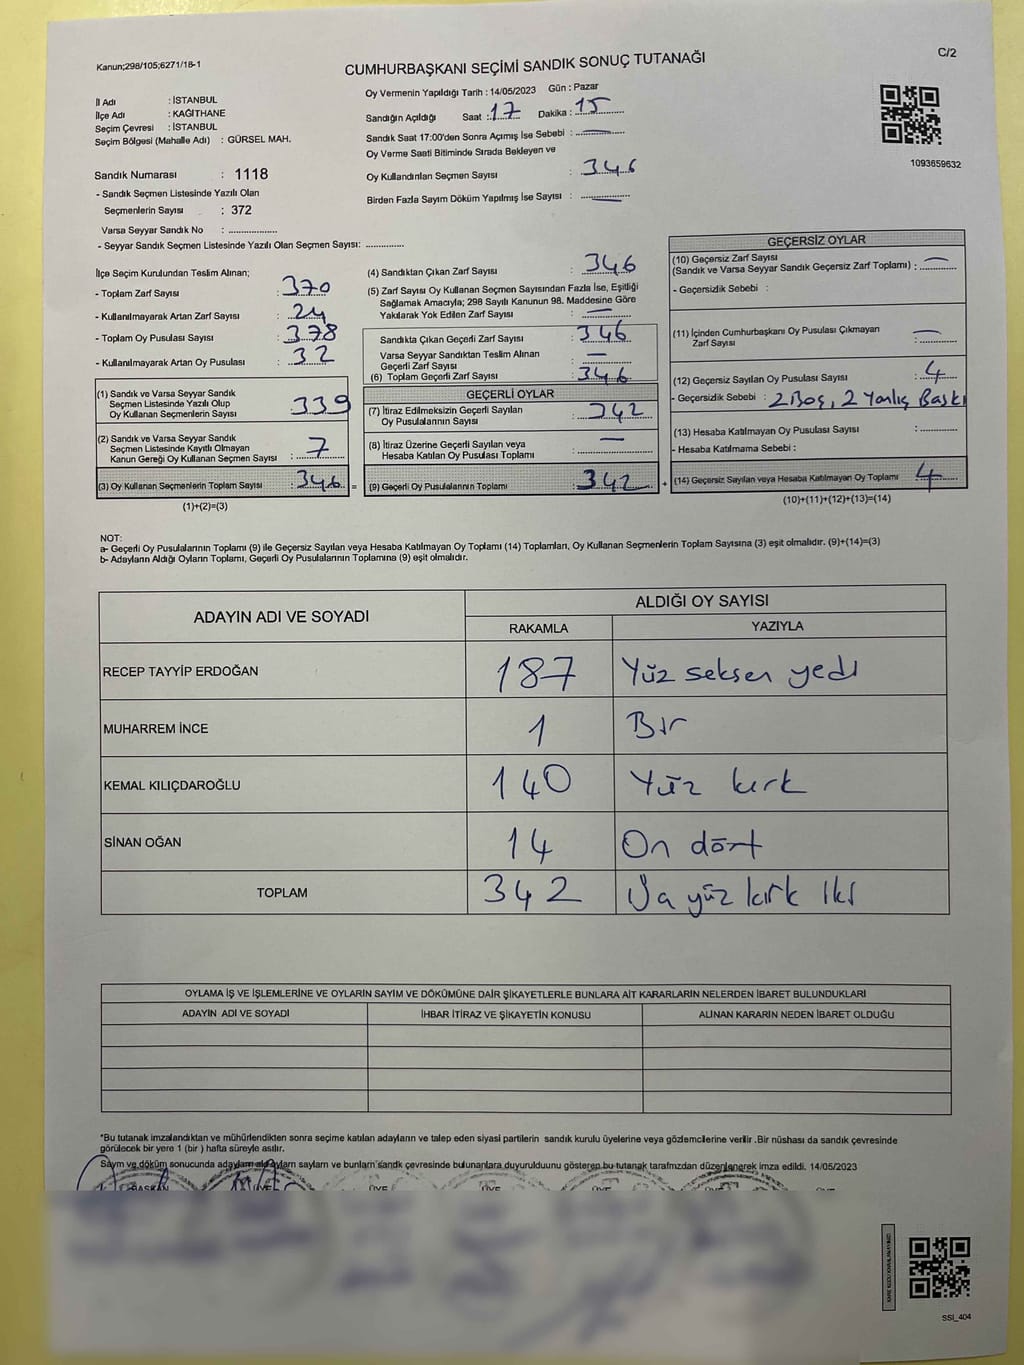 Kanun;298/105;6271/18-1
C/2
CUMHURBAŞKANI SEÇİMİ SANDIK SONUÇ TUTANAĞI
İl Adı : İSTANBUL
İlçe Adı : KAĞITHANE
Seçim Çevresi : İSTANBUL
Seçim Bölgesi (Mahalle Adı) : GÜRSEL MAH.
Oy Vermenin Yapıldığı Tarih : 14/05/2023 Gün : Pazar
Sandığın Açıldığı Saat : 17 Dakika : 15
Sandık Saat 17:00'den Sonra Açımış İse Sebebi : —
Oy Verme Saati Bitiminde Sırada Bekleyen ve
Oy Kullandırılan Seçmen Sayısı : 346
Birden Fazla Sayım Döküm Yapılmış İse Sayısı : —
1093659632
Sandık Numarası : 1118
- Sandık Seçmen Listesinde Yazılı Olan
Seçmenlerin Sayısı : 372
Varsa Seyyar Sandık No : ..................
- Seyyar Sandık Seçmen Listesinde Yazılı Olan Seçmen Sayısı: ..............
İlçe Seçim Kurulundan Teslim Alınan;
- Toplam Zarf Sayısı : 370
- Kullanılmayarak Artan Zarf Sayısı : 24
- Toplam Oy Pusulası Sayısı : 378
- Kullanılmayarak Artan Oy Pusulası : 32
(1) Sandık ve Varsa Seyyar Sandık
Seçmen Listesinde Yazılı Olup
Oy Kullanan Seçmenlerin Sayısı : 339
(2) Sandık ve Varsa Seyyar Sandık
Seçmen Listesinde Kayıtlı Olmayan
Kanun Gereği Oy Kullanan Seçmen Sayısı : 7
(3) Oy Kullanan Seçmenlerin Toplam Sayısı : 346 =
(1)+(2)=(3)
(4) Sandıktan Çıkan Zarf Sayısı : 346
(5) Zarf Sayısı Oy Kullanan Seçmen Sayısından Fazla İse, Eşitliği
Sağlamak Amacıyla; 298 Sayılı Kanunun 98. Maddesine Göre
Yakılarak Yok Edilen Zarf Sayısı : —
Sandıkta Çıkan Geçerli Zarf Sayısı : 346
Varsa Seyyar Sandıktan Teslim Alınan
Geçerli Zarf Sayısı : —
(6) Toplam Geçerli Zarf Sayısı : 346
GEÇERLİ OYLAR
(7) İtiraz Edilmeksizin Geçerli Sayılan
Oy Pusulalarının Sayısı : 342
(8) İtiraz Üzerine Geçerli Sayılan veya
Hesaba Katılan Oy Pusulası Toplamı : —
(9) Geçerli Oy Pusulalarının Toplamı : 342 +
GEÇERSİZ OYLAR
(10) Geçersiz Zarf Sayısı
(Sandık ve Varsa Seyyar Sandık Geçersiz Zarf Toplamı) : —
- Geçersizlik Sebebi :
(11) İçinden Cumhurbaşkanı Oy Pusulası Çıkmayan
Zarf Sayısı : —
(12) Geçersiz Sayılan Oy Pusulası Sayısı : 4
- Geçersizlik Sebebi : 2 Boş, 2 Yanlış Baskı
(13) Hesaba Katılmayan Oy Pusulası Sayısı : ............
- Hesaba Katılmama Sebebi :
(14) Geçersiz Sayılan veya Hesaba Katılmayan Oy Toplamı : 4
(10)+(11)+(12)+(13)=(14)
NOT:
a- Geçerli Oy Pusulalarının Toplamı (9) ile Geçersiz Sayılan veya Hesaba Katılmayan Oy Toplamı (14) Toplamları, Oy Kullanan Seçmenlerin Toplam Sayısına (3) eşit olmalıdır. (9)+(14)=(3)
b- Adayların Aldığı Oyların Toplamı, Geçerli Oy Pusulalarının Toplamına (9) eşit olmalıdır.
ADAYIN ADI VE SOYADI ALDIĞI OY SAYISI
RAKAMLA YAZIYLA
RECEP TAYYİP ERDOĞAN 187 Yüz seksen yedi
MUHARREM İNCE 1 Bir
KEMAL KILIÇDAROĞLU 140 Yüz kırk
SİNAN OĞAN 14 On dört
TOPLAM 342 Üç yüz kırk iki
OYLAMA İŞ VE İŞLEMLERİNE VE OYLARIN SAYIM VE DÖKÜMÜNE DAİR ŞİKAYETLERLE BUNLARA AİT KARARLARIN NELERDEN İBARET BULUNDUKLARI
ADAYIN ADI VE SOYADI İHBAR İTİRAZ VE ŞİKAYETİN KONUSU ALINAN KARARIN NEDEN İBARET OLDUĞU
*Bu tutanak imzalandıktan ve mühürlendikten sonra seçime katılan adayların ve talep eden siyasi partilerin sandık kurulu üyelerine veya gözlemcilerine verilir .Bir nüshası da sandık çevresinde
görülecek bir yere 1 (bir ) hafta süreyle asılır.
Sayım ve döküm sonucunda adayların aldığı oyların sayıları ve bunların sandık çevresinde bulunanlara duyurulduğunu gösteren bu tutanak tarafımızdan düzenlenerek imza edildi. 14/05/2023
BAŞKAN ÜYE ÜYE ÜYE ÜYE
SSI_404